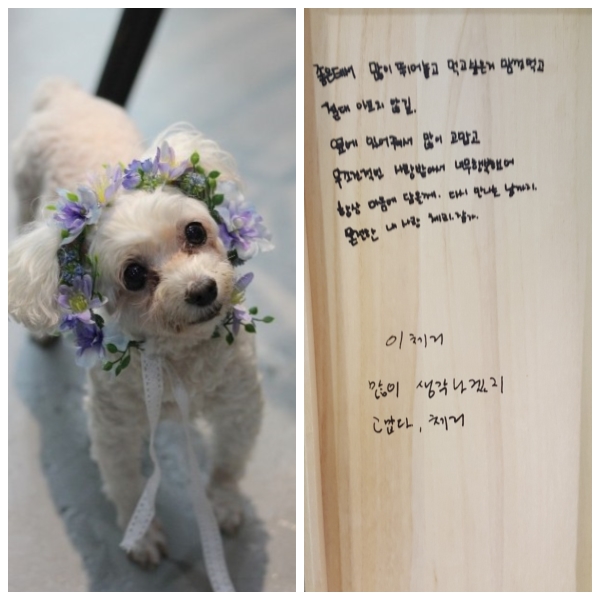 좋은데서 많이 뛰어놀고 먹고싶은거 맘껏먹고
절대 아프지 않길.
옆에 있어줘서 많이 고맙고
무조건적인 사랑받아서 너무행복했어
항상 마음에 담을게. 다시 만나는 날까지.
영원한 내 사랑 체리. 잘가.
이체리
많이 생각나겠지
고맙다, 체리